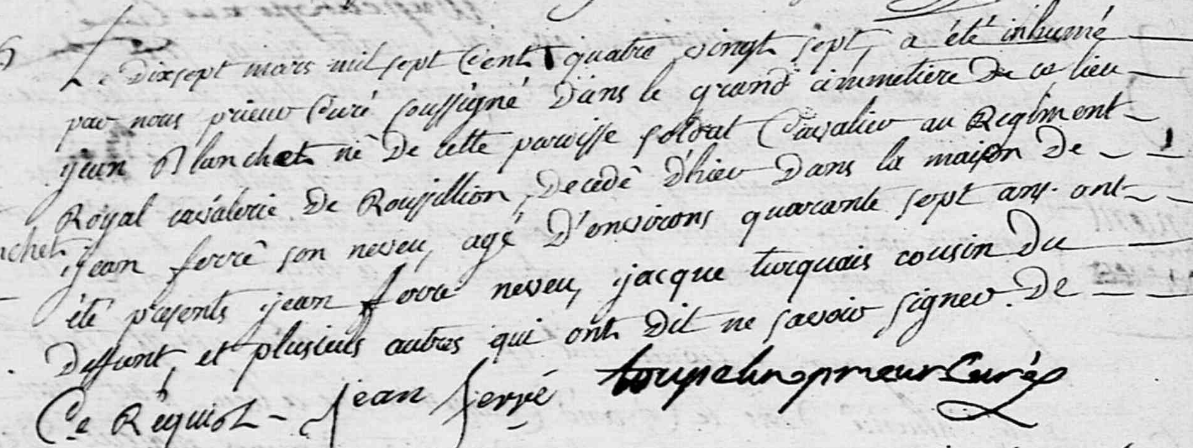 Le Dixsept mars mil sept Cent quatre vingt sept, a été inhumé
par nous prieur Curé soussigné Dans le grand cimmetiere De ce lieu
jean Blanchet né De cette paroisse soldat Cavalier au Regiment
Royal cavalerie De Roussillion, Decedé D'hier Dans la maison De
jean ferré son neveu, agé D'environs quarante sept ans. ont
été presents jean ferré neveu, jacque turquais cousin Du
Deffunt, et plusieurs autres qui ont Dit ne savoir signer. De
Ce Réquiot - jean ferré toupelin prieur Curé